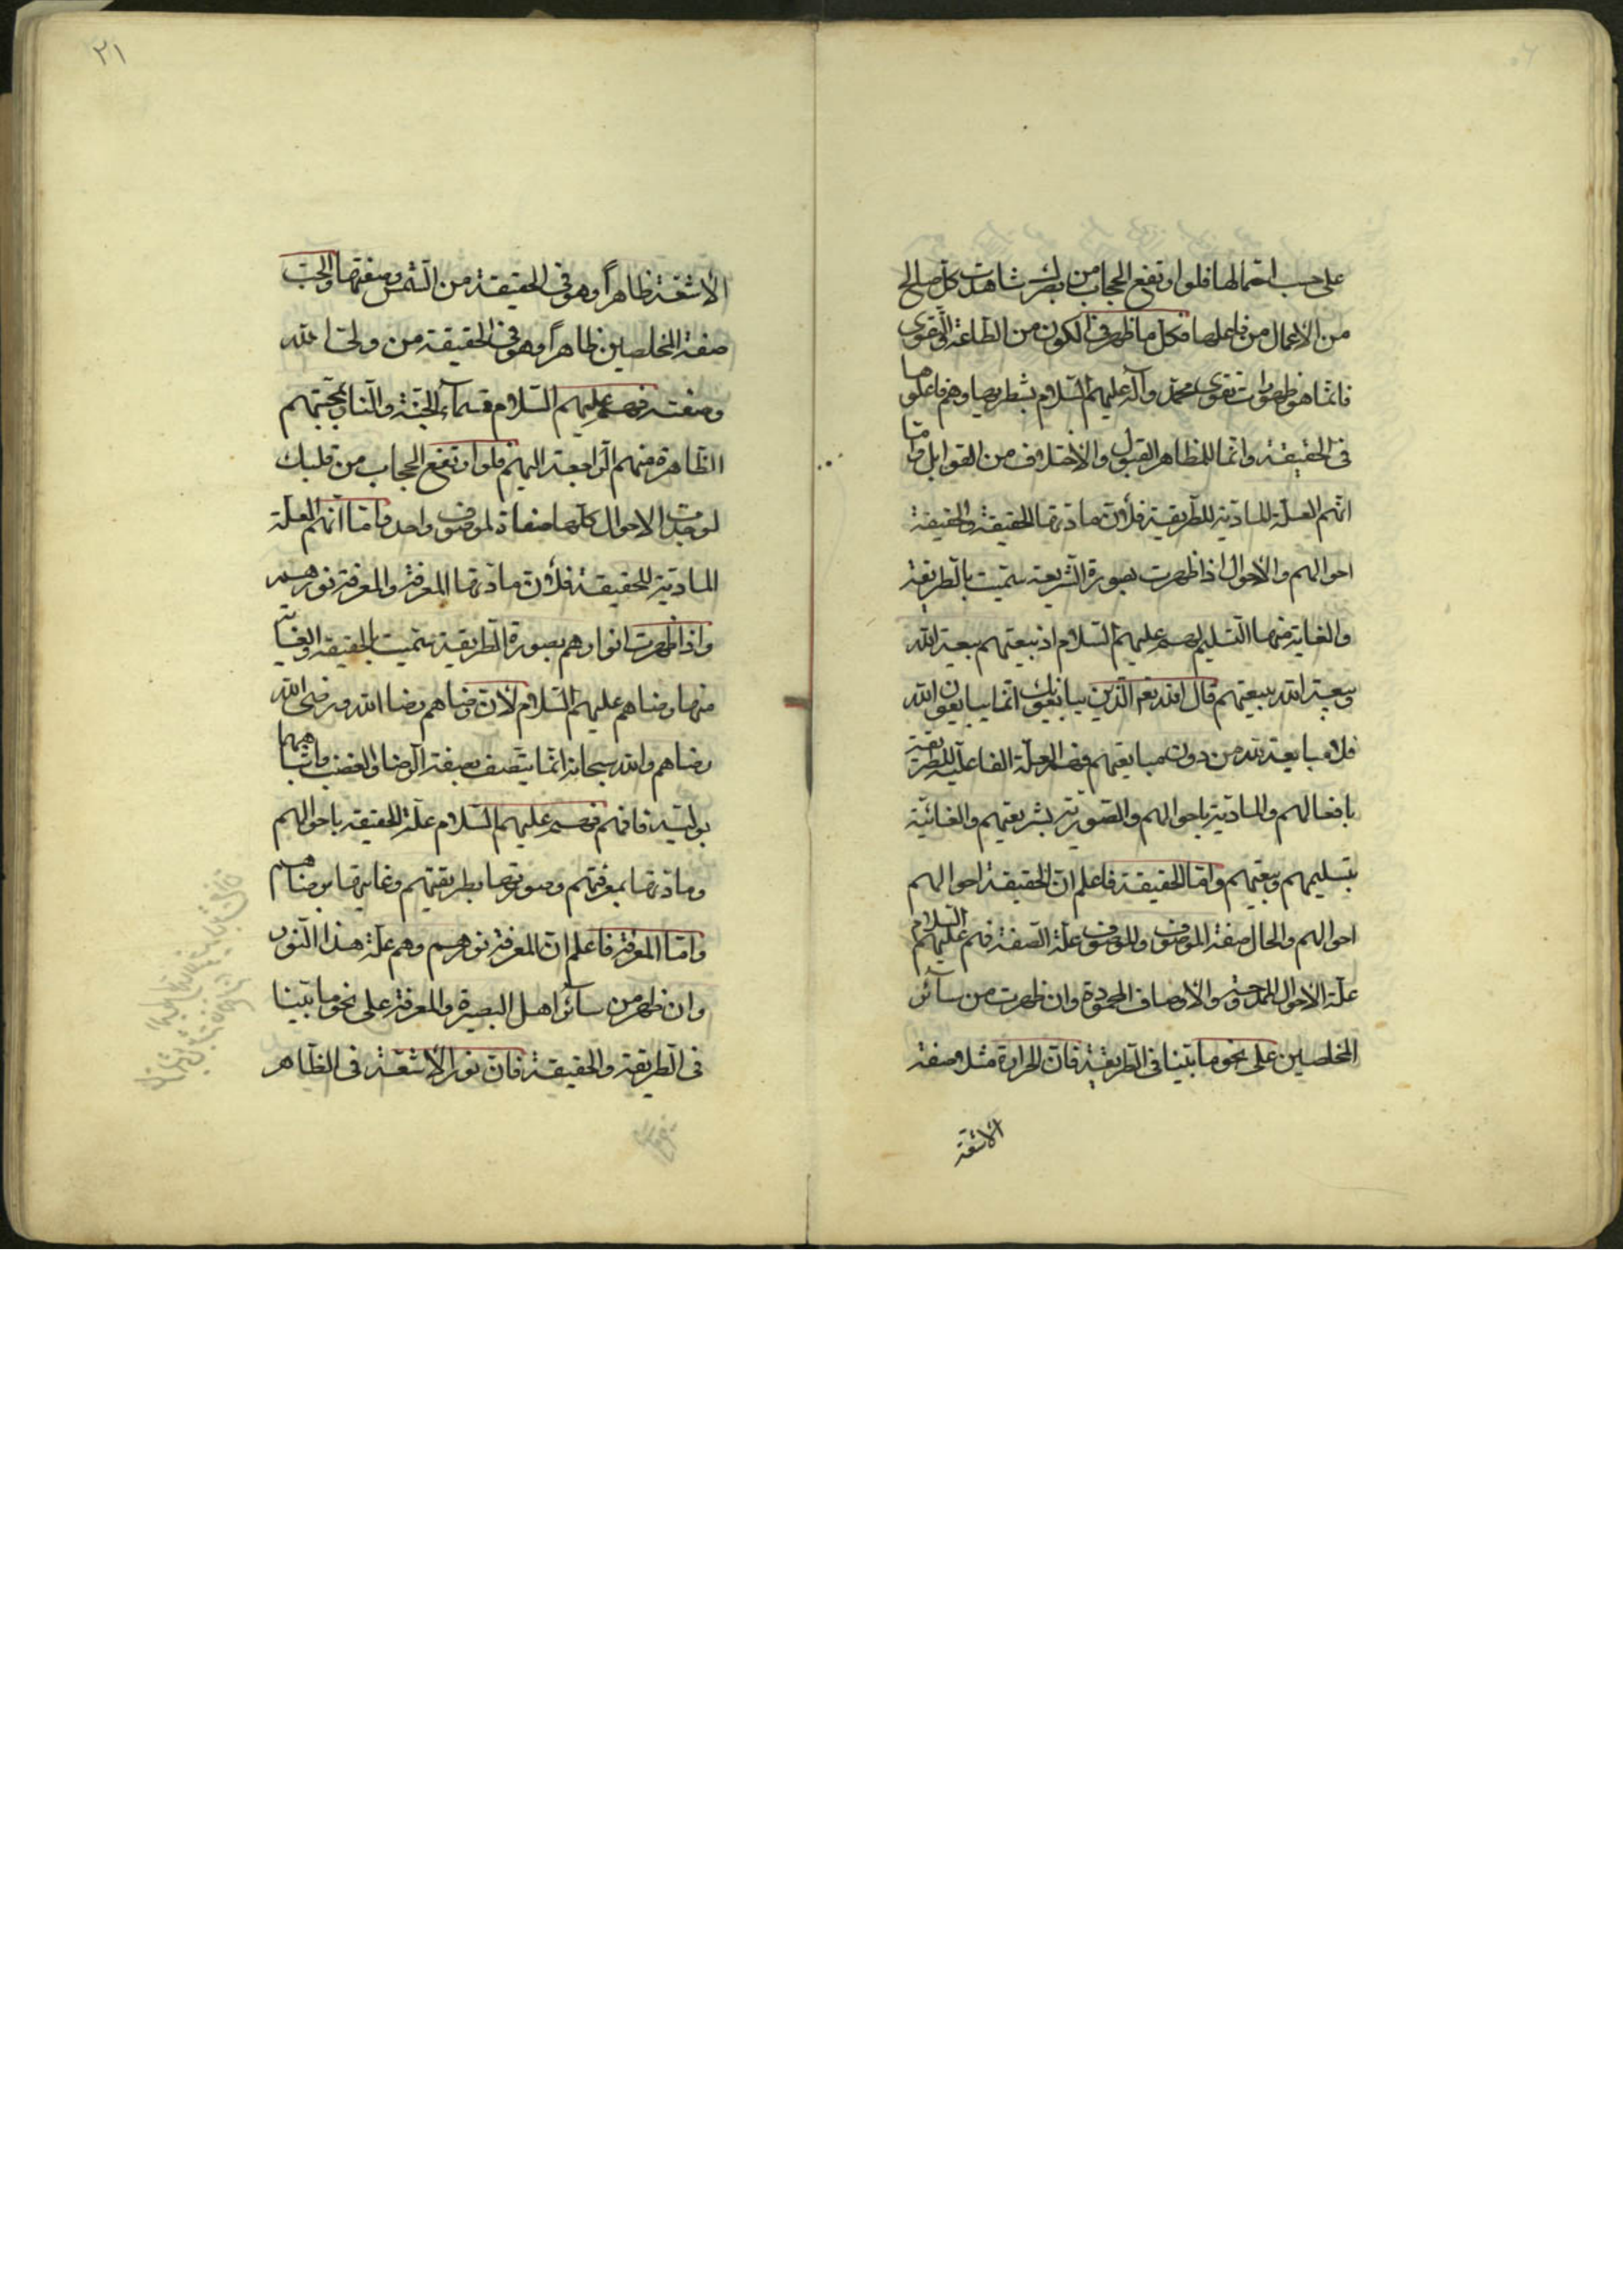 على حسب احتمالها فلو ارتفع الحجاب من بصرك شاهدت كل صالح
من الاعمال من فاعلها فكل ما ظهر فى الكون من الطاعة والتقوى
فانما هو ظهورات تقوى محمد وآله عليهم السلام بشطريها وهم فاعلوها
فى الحقيقة وانما للمظاهر القبول والاختلاف من القوابل واما
انهم العلة المادية للطريقة فلأن مادتها الحقيقة والحقيقة
احوالهم والأحوال اذا ظهرت بصورة الشريعة سميت بالطريقة
والغاية منها التسليم لهم عليهم السلام اذ بيعتهم بيعة الله
وبيعة الله ببيعتهم قال الله تعم الذين يبايعونك انما يبايعون الله
فلا مبايعة لله من دون مبايعتهم فهم العلة الفاعلية للطريقة
بافعالهم والمادية باحوالهم والصورية بشريعتهم والغائية
بتسليمهم وبيعتهم واما الحقيقة فاعلم ان الحقيقة احوالهم
احوالهم والحال صفة الموصوف والموصوف علة الصفة فهم عليهم السلام
علة الاحوال الممدوحة والاوصاف المحمودة وان ظهرت من سآئر
المخلصين على نحو ما بينا فى الطريقة فان الحرارة مثلا صفة
الاشعة
٢١
الأشعة ظاهراً وهو فى الحقيقة من الشمس وصفتها والحب
صفة المخلصين ظاهراً وهو فى الحقيقة من ولى الله
وصفته فهم عليهم السلام قسمآء الجنة والنار بمحبتهم
الظاهرة منهم الراجعة اليهم فلو ارتفع الحجاب من قلبك
لوجدت الاحوال كلها صفاة لموصوف واحد واما انهم العلة
المادية للحقيقة فلأن مادتها المعرفة والمعرفة نورهم
واذا ظهرت انوارهم بصورة الطريقة سميت بالحقيقة والغاية
منها رضاهم عليهم السلام لأن رضاهم رضا الله ورضى الله
رضاهم والله سبحانه انما يتصف بصفة الرضا والغضب واشباههما
بوليه فافهم فهم عليهم السلام علة للحقيقة باحوالهم
ومادتها بمعرفتهم وصورتها بطريقتهم وغايتها برضاهم
واما المعرفة فاعلم ان المعرفة نورهم وهم علة هذا النور
وان ظهر من سآئر اهل البصيرة والمعرفة على نحو ما بينا
فى الطريقة والحقيقة فان نور الأشعة فى الظاهر